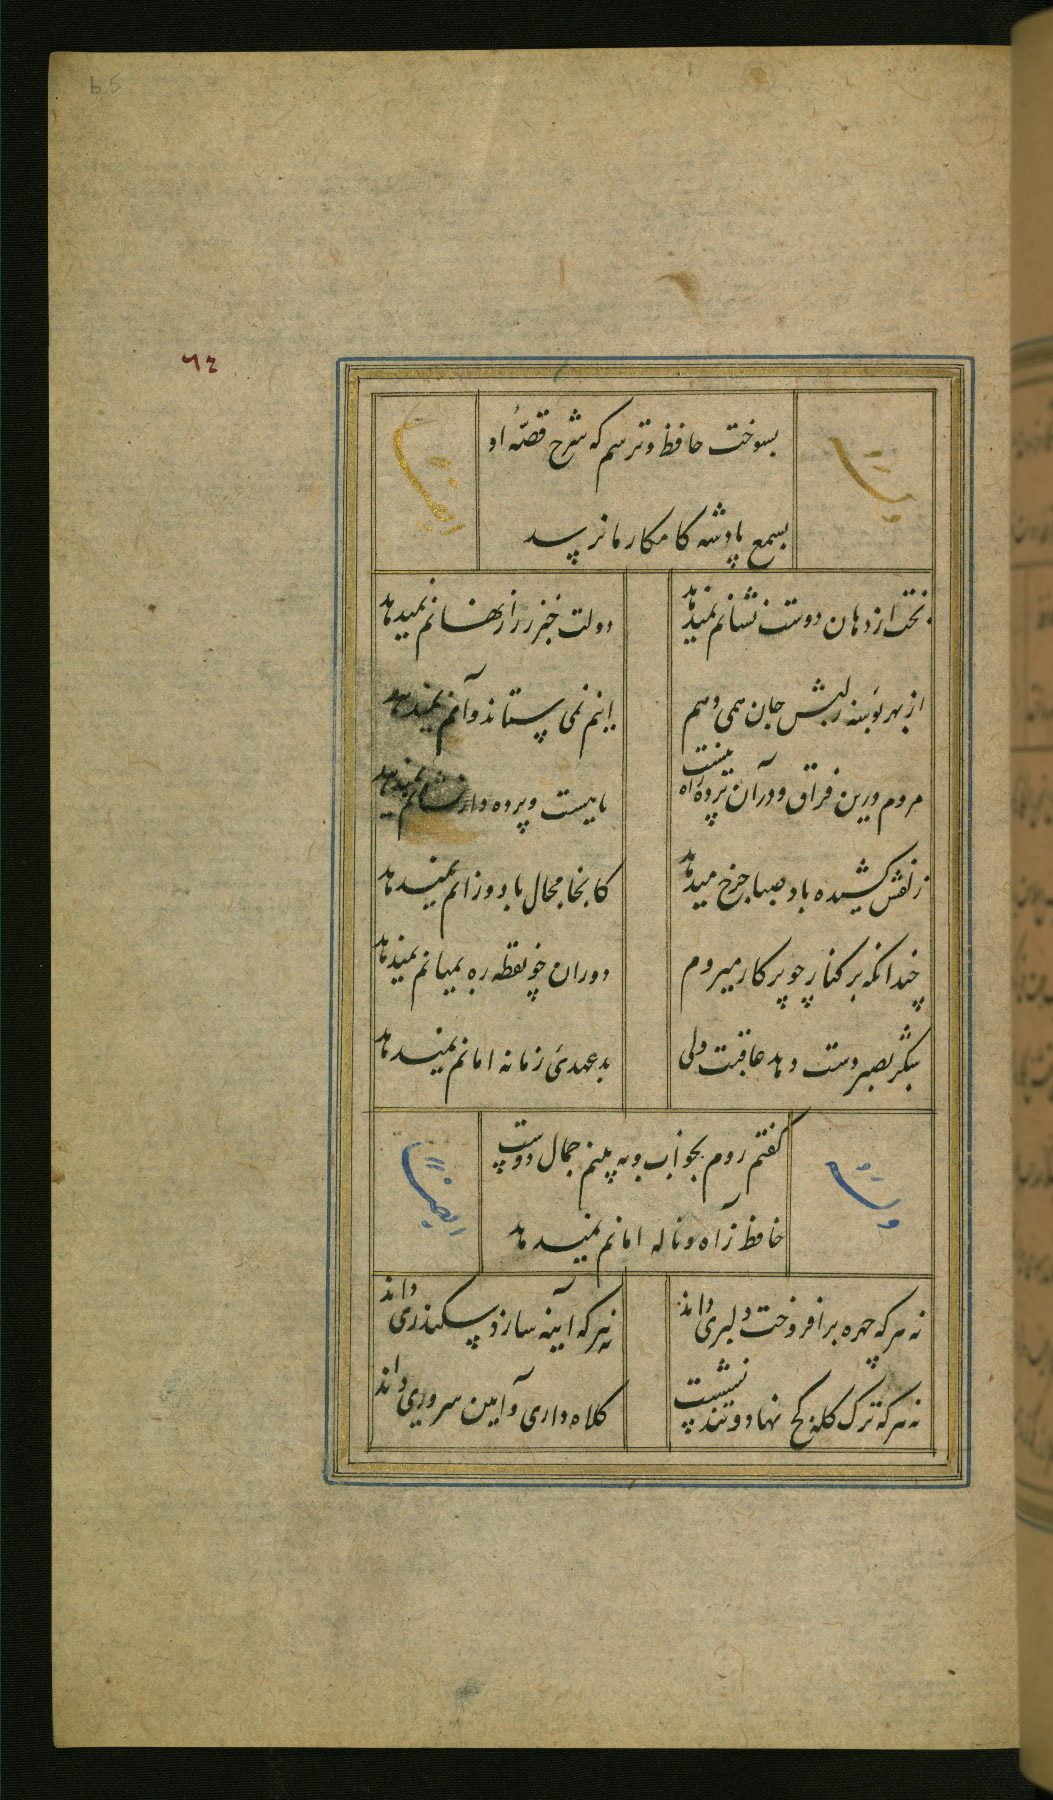 65
٦٤
بسوخت حافظ و ترسم که شرح قصّهٔ او
بسمع پادشه کامکار ما نرسد
بختم از دهان دوست نشانم نمیدهد
دولت خبر ز راز نهانم نمیدهد
از بهر بوسه ز لبش جان همی دهم
اینم نمی ستاند و آنم نمیدهد
مردم درین فراق و در آن پرده راه نیست
یا نیست و پرده دار نشانم نمیدهد
زلفش کشیده باد صبا چرخ میدهد
کانجا مجال باد وزانم نمیدهد
چندانکه بر کنار چو پرکار میروم
دوران چو نقطه ره بمیانم نمیدهد
شکر بصبر دست دهد عاقبت ولی
بدعهدیٔ زمانه امانم نمیدهد
گفتم روم بخواب و به بینم جمال دوست
حافظ ز آه و ناله امانم نمیدهد
وله
ایضاً
نه هر که چهره برافروخت دلبری داند
نه هر که آینه سازد سکندری داند
نه هر که ترک کله کج نهاد و تند نشست
کلاه داری و آیین سروری داند